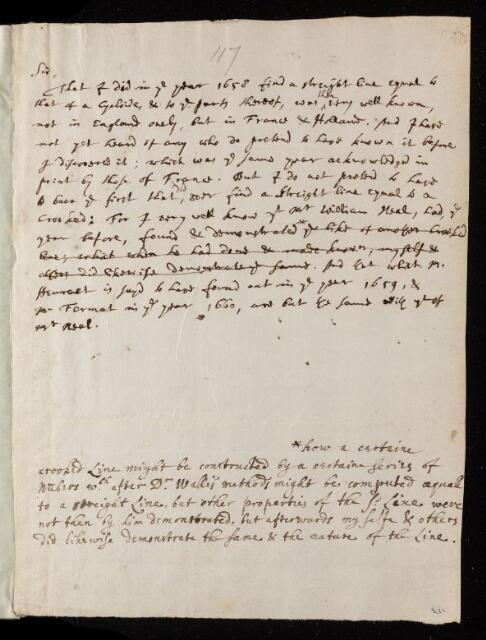 117
Sir,
That I did in yᵉ year 1658 find a streight line equal to
that of a Cycloide, & to yᵉ parts thereof, was very well known,
not in England onely, but in France & Holland. And I have
not yet heard of any who do pretend to have known it before
I discovered it; which was yᵉ same year acknowledged in
print by those of France. But I do not pretend to have
been yᵉ first that did ever find a streight line equal to a
Crooked: For I very well know yᵗ Mʳ William Neal, had, yᵉ
year before, found & demonstrated yᵉ like of another Crooked
line; which when he had done & made known, myself &
others did likewise demonstrate yᵉ same. And yet what Mʳ
Heuraet is sayd to have found out in yᵉ year 1659, &
Mʳ Fermat in yᵉ year 1660, are but the same with yᵗ of
Mʳ Neal.
*how a certaine
crooked Line might be constructed by a certaine series of
Nubers wᶜʰ after Dʳ Wallis methods might be computed æqual
to a streight Line. but other properties of the sᵈ Line were
not then by him demonstrated. but afterwards my selfe & others
did likewise demonstrate the same & the nature of the Line.